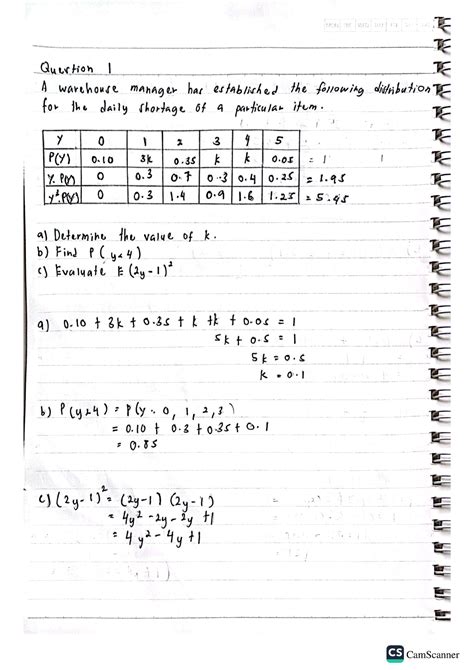 Question 1
A warehouse manager has established the following distribution
for the daily shortage of a particular item.
Y 0 1 2 3 4 5
P(Y) 0.10 3k 0.35 k k 0.05 = 1
Y.P(Y) 0 0.3 0.7 0.3 0.4 0.25 = 1.95
Y².P(Y) 0 0.3 1.4 0.9 1.6 1.25 = 5.45
a) Determine the value of k.
b) Find P(y<4)
c) Evaluate E(2y-1)²
a) 0.10 + 3k + 0.35 + k + k + 0.05 = 1
5k + 0.5 = 1
5k = 0.5
k = 0.1
b) P(y<4) = P(y = 0, 1, 2, 3)
= 0.10 + 0.3 + 0.35 + 0.1
= 0.85
c) (2y-1)² = (2y-1) (2y-1)
= 4y² - 2y - 2y + 1
= 4y² - 4y + 1
CS CamScanner